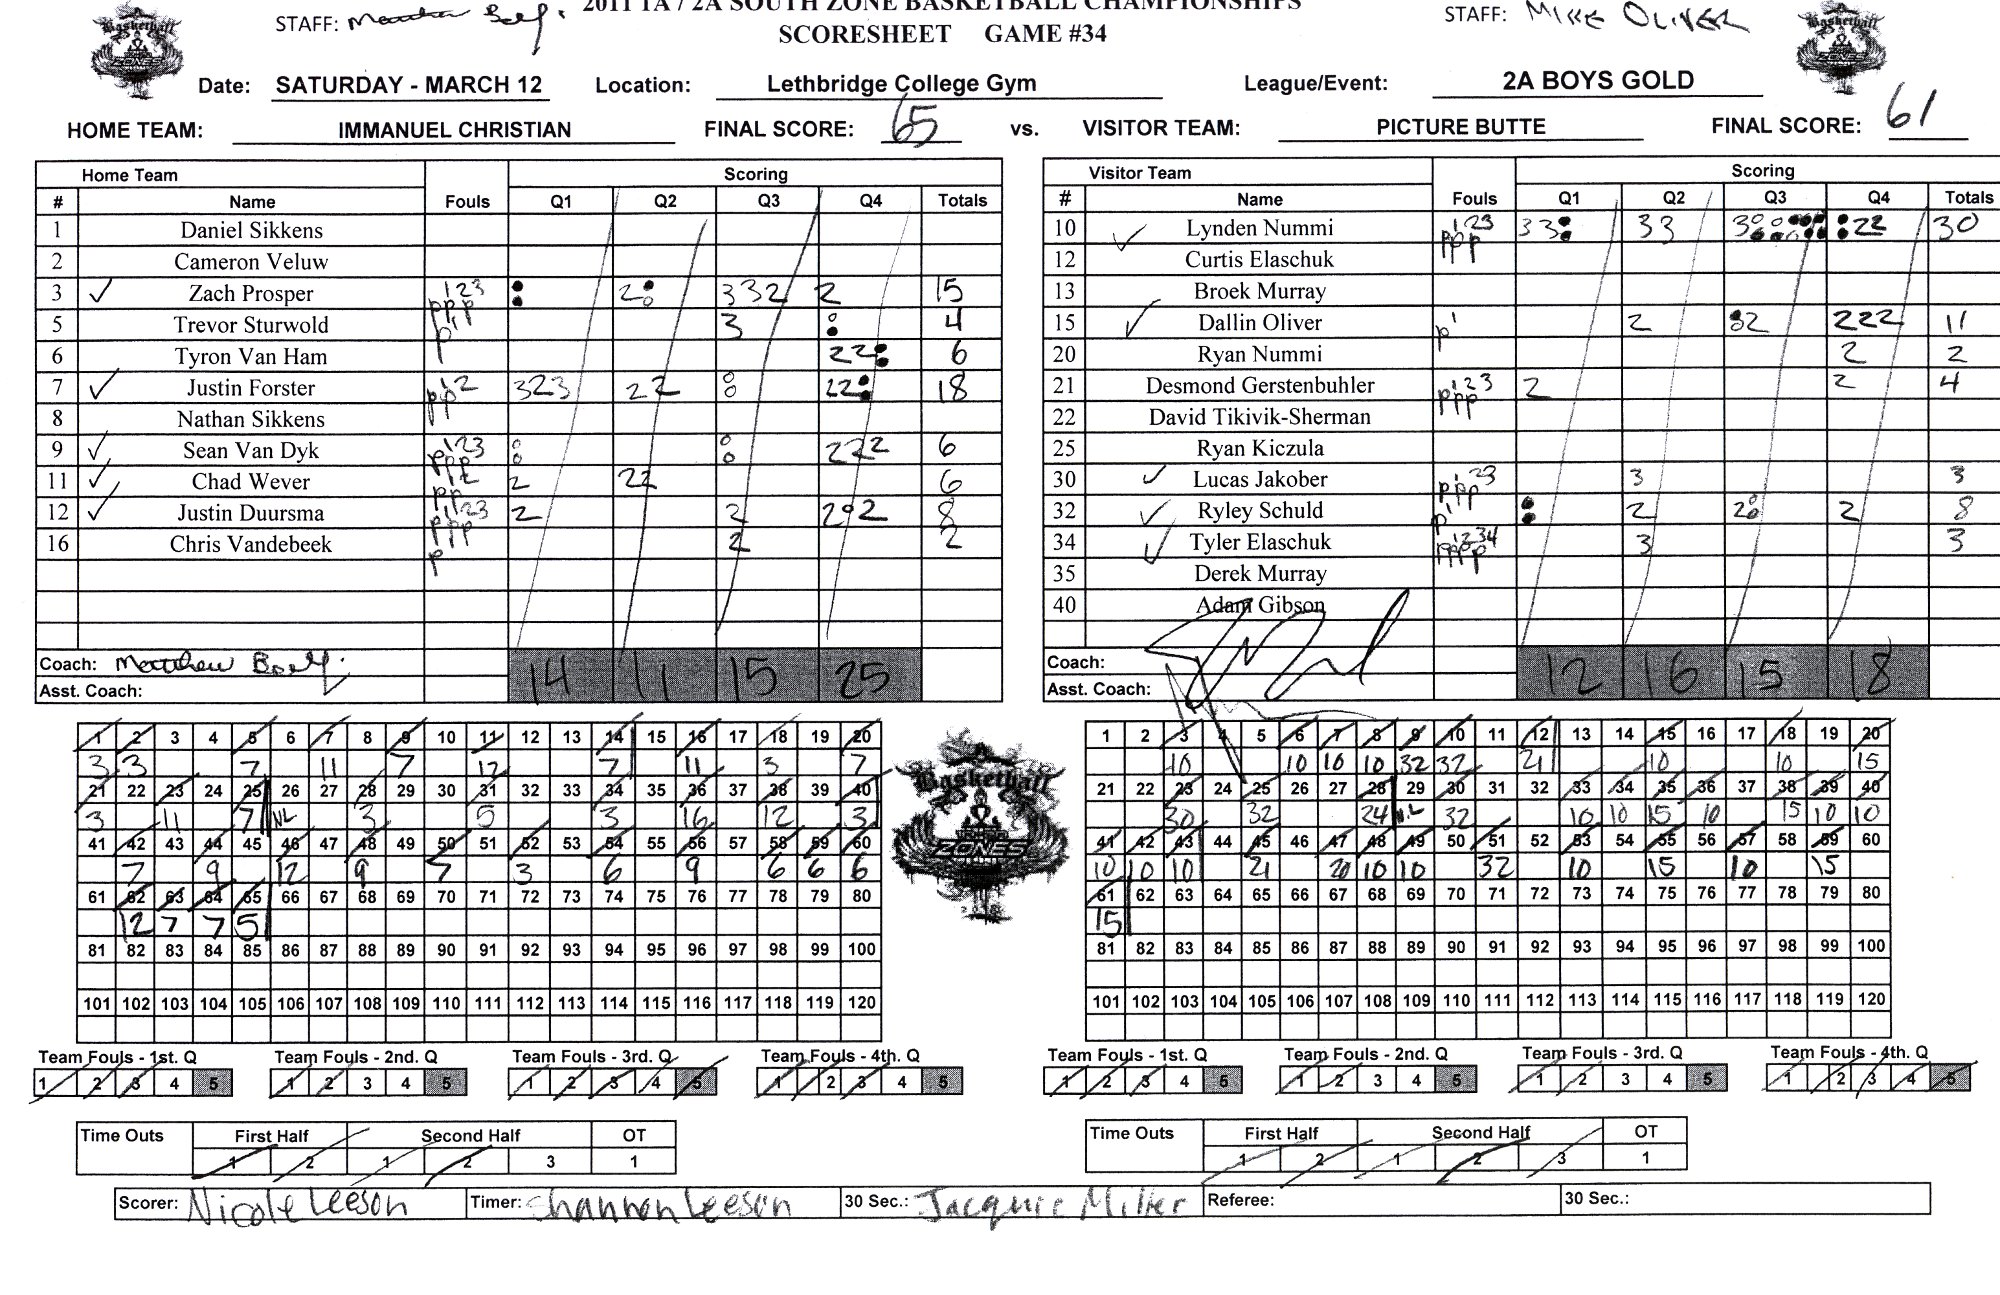 STAFF: 2011 1A / 2A SOUTH ZONE BASKETBALL CHAMPIONSHIPS STAFF: MIKE OLIVER
SCORESHEET GAME #34
Date: SATURDAY - MARCH 12 Location: Lethbridge College Gym League/Event: 2A BOYS GOLD
HOME TEAM: IMMANUEL CHRISTIAN FINAL SCORE: 65 vs. VISITOR TEAM: PICTURE BUTTE FINAL SCORE: 61
Home Team Scoring
# Name Fouls Q1 Q2 Q3 Q4 Totals
1 Daniel Sikkens
2 Cameron Veluw
3 Zach Prosper ppp 123 2 332 2 15
5 Trevor Sturwold p 1 3 4
6 Tyron Van Ham 22 6
7 Justin Forster pp 12 323 22 22 18
8 Nathan Sikkens
9 Sean Van Dyk ppp 123 222 6
11 Chad Wever pp 12 2 22 6
12 Justin Duursma ppp 123 2 2 2 2 8
16 Chris Vandebeek p 2 2
Coach: Matthew 14 11 15 25
Asst. Coach:
Visitor Team Scoring
# Name Fouls Q1 Q2 Q3 Q4 Totals
10 Lynden Nummi ppp 123 33 33 3 22 30
12 Curtis Elaschuk
13 Broek Murray
15 Dallin Oliver p 1 2 2 222 11
20 Ryan Nummi 2 2
21 Desmond Gerstenbuhler ppp 123 2 2 4
22 David Tikivik-Sherman
25 Ryan Kiczula
30 Lucas Jakober ppp 123 3 3
32 Ryley Schuld p 1 2 2 2 8
34 Tyler Elaschuk pppp 1234 3 3
35 Derek Murray
40 Adam Gibson
Coach: 12 16 15 18
Asst. Coach:
1 2 3 4 5 6 7 8 9 10 11 12 13 14 15 16 17 18 19 20
3 3 7 11 7 12 7 11 3 7
21 22 23 24 25 26 27 28 29 30 31 32 33 34 35 36 37 38 39 40
3 11 7 NL 3 5 3 16 12 3
41 42 43 44 45 46 47 48 49 50 51 52 53 54 55 56 57 58 59 60
7 9 12 9 7 3 6 9 6 6 6
61 62 63 64 65 66 67 68 69 70 71 72 73 74 75 76 77 78 79 80
12 7 7 5
81 82 83 84 85 86 87 88 89 90 91 92 93 94 95 96 97 98 99 100
101 102 103 104 105 106 107 108 109 110 111 112 113 114 115 116 117 118 119 120
Basketball
ZONES
1 2 3 4 5 6 7 8 9 10 11 12 13 14 15 16 17 18 19 20
10 10 10 10 32 32 21 10 10 15
21 22 23 24 25 26 27 28 29 30 31 32 33 34 35 36 37 38 39 40
30 32 24 NL 32 10 10 15 10 15 10 10
41 42 43 44 45 46 47 48 49 50 51 52 53 54 55 56 57 58 59 60
10 10 10 21 20 10 10 32 10 15 10 15
61 62 63 64 65 66 67 68 69 70 71 72 73 74 75 76 77 78 79 80
15
81 82 83 84 85 86 87 88 89 90 91 92 93 94 95 96 97 98 99 100
101 102 103 104 105 106 107 108 109 110 111 112 113 114 115 116 117 118 119 120
Team Fouls - 1st. Q Team Fouls - 2nd. Q Team Fouls - 3rd. Q Team Fouls - 4th. Q
1 2 3 4 5 1 2 3 4 5 1 2 3 4 5 1 2 3 4 5
Team Fouls - 1st. Q Team Fouls - 2nd. Q Team Fouls - 3rd. Q Team Fouls - 4th. Q
1 2 3 4 5 1 2 3 4 5 1 2 3 4 5 1 2 3 4 5
Time Outs First Half Second Half OT
1 2 1 2 3 1
Time Outs First Half Second Half OT
1 2 1 2 3 1
Scorer: Nicole Leeson Timer: Shannon Leeson 30 Sec.: Jacquie Miller Referee: 30 Sec.: